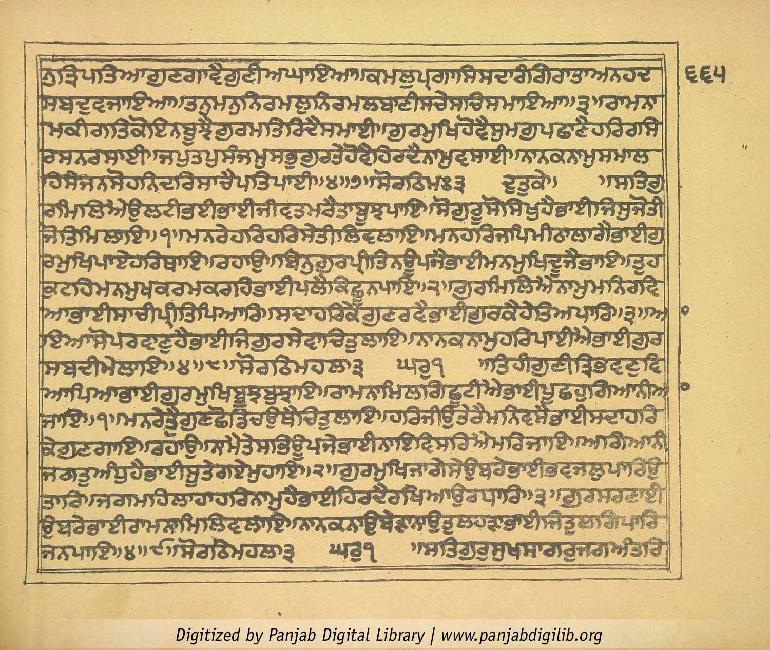 ਨੁਤ੍ਰਿਪਤਿਆਗੁਣਗਾਵੈਗੁਣੀਅਘਾਇਆ॥ਕਮਲੁਪ੍ਰਗਾਸਿਸਦਾਰੰਗਿਰਾਤਾਅਨਹਦ
ਸਬਦੁਵਜਾਇਆ॥ਤਨੁਮਨੁਨਿਰਮਲੁਨਿਰਮਲਬਾਣੀਸਚੇਸਚਿਸਮਾਇਆ॥੩॥ਰਾਮਨਾ
ਮਕੀਗਤਿਕੋਇਨਬੂਝੈਗੁਰਮਤਿਰਿਦੈਸਮਾਈ॥ਗੁਰਮੁਖਿਹੋਵੈਸੁਮਗੁਪਛਾਣੈਹਰਿਰਸਿ
ਰਸਨਰਸਾਈ॥ਜਪੁਤਪੁਸੰਜਮੁਸਭੁਗੁਰਤੇਹੋਵੈਹਿਰਦੈਨਾਮੁਵਸਾਈ॥ਨਾਨਕਨਾਮੁਸਮਾਲ
ਹਿਸੇਜਨਸੋਹਨਿਦਰਿਸਾਚੈਪਤਿਪਾਈ॥੪॥੭॥ਸੋਰਠਿਮਃ੩ ਦੁਤੁਕੇ॥ ॥ਸਤਿਗੁ
ਰਮਿਲਿਐਉਲਟੀਭਈਭਾਈਜੀਵਤਮਰੈਤਾਬੂਝਪਾਇ॥ਸੋਗੁਰੂਸੋਸਿਖੁਹੈਭਾਈਜਿਸੁਜੋਤੀ
ਜੋਤਿਮਿਲਾਇ॥੧॥ਮਨਰੇਹਰਿਹਰਿਸੇਤੀਲਿਵਲਾਇ॥ਮਨਹਰਿਜਪਿਮੀਠਾਲਾਗੈਭਾਈਗੁ
ਰਮੁਖਿਪਾਏਹਰਿਥਾਇ॥ਰਹਾਉ॥ਬਿਨੁਗੁਰਪ੍ਰੀਤਿਨਊਪਜੈਭਾਈਮਨਮੁਖਿਦੂਜੈਭਾਇ॥ਤੁਹ
ਕੁਟਹਿਮਨਮੁਖਕਰਮਕਰਹਿਭਾਈਪਲੈਕਿਛੂਨਪਾਇ॥੨॥ਗੁਰਮਿਲਿਐਨਾਮੁਮਨਿਰਵਿ
ਆਭਾਈਸਾਚੀਪ੍ਰੀਤਿਪਿਆਰਿ॥ਸਦਾਹਰਿਕੇਗੁਣਰਵੈਭਾਈਗੁਰਕੈਹੇਤਿਅਪਾਰਿ॥੩॥ਆ
ਇਆਸੋਪਰਵਾਣੁਹੈਭਾਈਜਿਗੁਰਸੇਵਾਚਿਤੁਲਾਇ॥ਨਾਨਕਨਾਮੁਹਰਿਪਾਈਐਭਾਈਗੁਰ
ਸਬਦੀਮੇਲਾਇ॥੪॥੮॥ਸੋਰਠਿਮਹਲਾ੩ ਘਰੁ੧ ॥ਤਿਹੀਗੁਣੀਤ੍ਰਿਭਵਣੁਵਿ
ਆਪਿਆਭਾਈਗੁਰਮੁਖਿਬੂਝਬੁਝਾਇ॥ਰਾਮਨਾਮਿਲਗਿਛੂਟੀਐਭਾਈਪੂਛਹੁਗਿਆਨੀਆ
ਜਾਇ॥੧॥ਮਨਰੇਤ੍ਰੈਗੁਣਛੋਡਿਚਉਥੈਚਿਤੁਲਾਇ॥ਹਰਿਜੀਉਤੇਰੈਮਨਿਵਸੈਭਾਈਸਦਾਹਰਿ
ਕੇਗੁਣਗਾਇ॥ਰਹਾਉ॥ਨਾਮੈਤੇਸਭਿਊਪਜੇਭਾਈਨਾਇਵਿਸਰਿਐਮਰਿਜਾਇ॥ਅਗਿਆਨੀ
ਜਗਤੁਅੰਧੁਹੈਭਾਈਸੂਤੇਗਏਮੁਹਾਇ॥੨॥ਗੁਰਮੁਖਿਜਾਗੇਸੇਉਬਰੇਭਾਈਭਵਜਲੁਪਾਰਿਉ
ਤਾਰਿ॥ਜਗਮਹਿਲਾਹਾਹਰਿਨਾਮੁਹੈਭਾਈਹਿਰਦੈਰਖਿਆਉਰਧਾਰਿ॥੩॥ਗੁਰਸਰਣਾਈ
ਉਬਰੇਭਾਈਰਾਮਨਾਮਿਲਿਵਲਾਇ॥ਨਾਨਕਨਾਉਬੇੜਾਨਾਉਤੁਲਹੜਾਭਾਈਜਿਤੁਲਗਿਪਾਰਿ
ਜਨਪਾਇ॥੪॥੯॥ਸੋਰਠਿਮਹਲਾ੩ ਘਰੁ੧ ॥ਸਤਿਗੁਰੁਸੁਖਸਾਗਰੁਜਗਅੰਤਰਿ
੬੬੫
Digitized by Panjab Digital Library | www.panjabdigilib.org